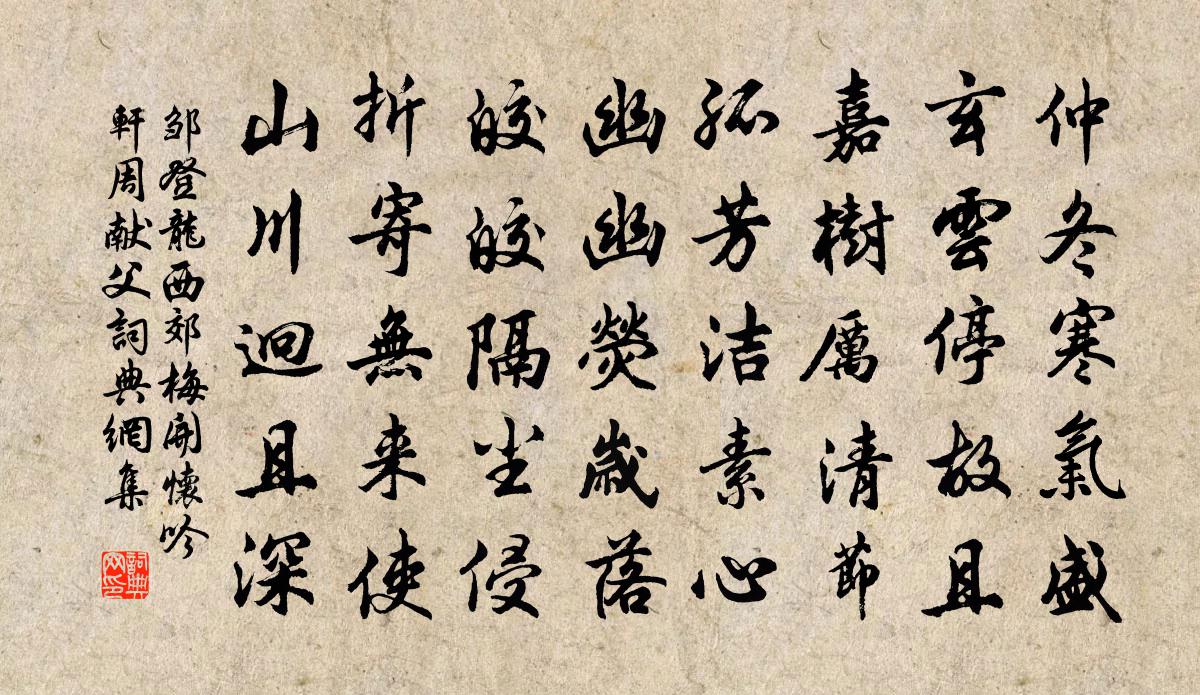 仲冬寒氣盛
玄雲停故且
嘉樹厲清節
孤芳洁素心
幽幽熒歲落
皎皎隔尘侵
折寄無来使
山川迥且深
邹登龍西郊梅開懷吟
軒周献父詞典網集
詞典网印